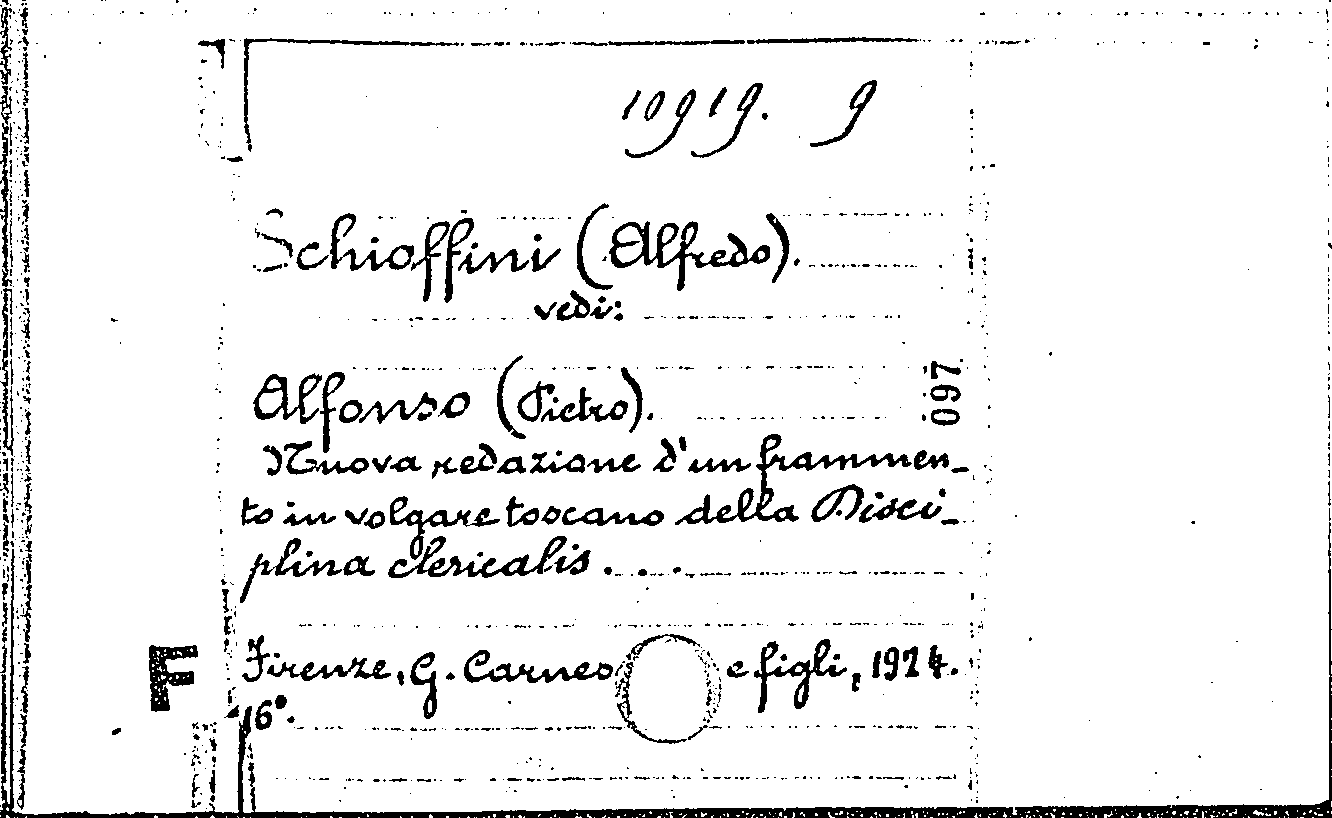 10919. 9
Schioffini (Alfredo).
vedi:
Alfonso (Pietro).
097
Nuova redazione d'un frammen-
to in volgare toscano della Disci-
plina clericalis . . .
F
Firenze, G. Carnes e figli, 1924.
16°.